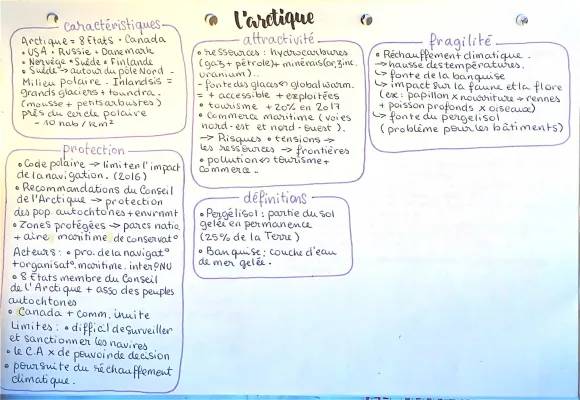 L'arctique
caractéristiques
Arctique = 8 Etats • Canada
• USA • Russie • Danemark
• Norvège • Suède • Finlande
• Suède → autour du pôle Nord -
Milieu polaire - Inlandsis =
grands glaciers + toundra.
(mousse + petits arbustes)
près du cercle polaire
- 10 hab / km²
protection
• Code polaire → limiter l'impact
de la navigation. (2016)
• Recommandations du Conseil
de l'Arctique → protection
des pop. autochtones + envrnmt
• Zones protégées → parcs natio.
+ aire maritime de conservat°
Acteurs : • pro. de la navigat°
+ organisat°. maritime. inter ONU
• 8 Etats membre du Conseil
de l'Arctique + asso des peuples
autochtones
• Canada + comm. inuite
Limites : • difficil de surveiller
et sanctionner les navires
• le C.A x de pouvoir de decision
• poursuite du réchauffement
climatique.
attractivité
• ressources : hydrocarbures
(gaz + pétrole) + minérais (or, zinc.
uranium)..
- fonte des glaces global worm.
= + accessible + exploitées
• tourisme + 20% en 2017
• commerce maritime (voies
nord-est et nord-ouest).
→ Risques • tensions →
les ressources → frontières
• pollution ↔ tourisme +
commerce..
définitions
• Pergélisol : partie du sol
gelée en permanence
(25% de la Terre)
• Banquise ; couche d'eau
de mer gelée.
fragilité
• Réchauffement climatique.
→ hausse des températures.
↳ fonte de la banquise
↳ impact sur la faune et la flore
(ex : papillon x nourriture + rennes
+ poisson profonds x oiseaux)
↳ fonte du pergelisol
(problème pour les bâtiments)